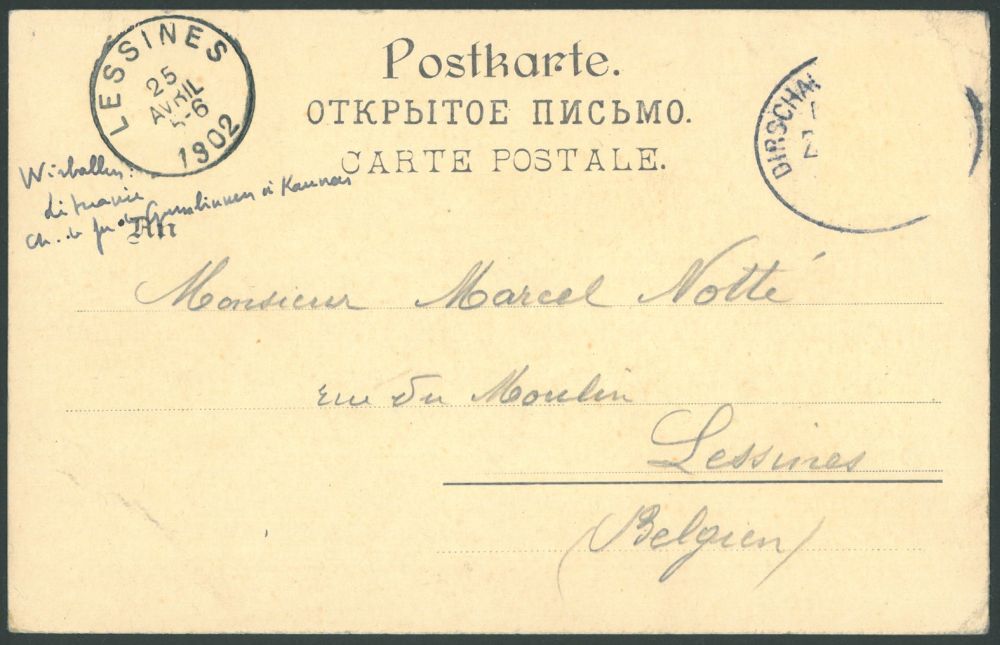 Postkarte.
ОТКРЫТОЕ ПИСЬМО.
CARTE POSTALE.
LESSINES
25
AVRIL
1902
DIRSCHA
Wirballen:
Lituanie
Ch. de fer de Gumbinnen à Kaunas
An
Monsieur Marcel Notté
rue du Moulin
Lessines
(Belgien)